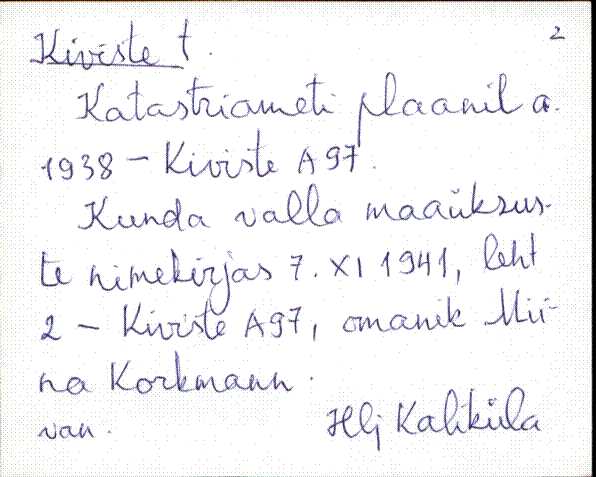 2
Kiviste t.
Katastriameti plaanil a.
1938 – Kiviste A97.
Kunda valla maaüksus-
te nimekirjas 7. XI 1941, leht
2 – Kiviste A97, omanik Mii-
na Korkmann.
van. Hlj Kaliküla